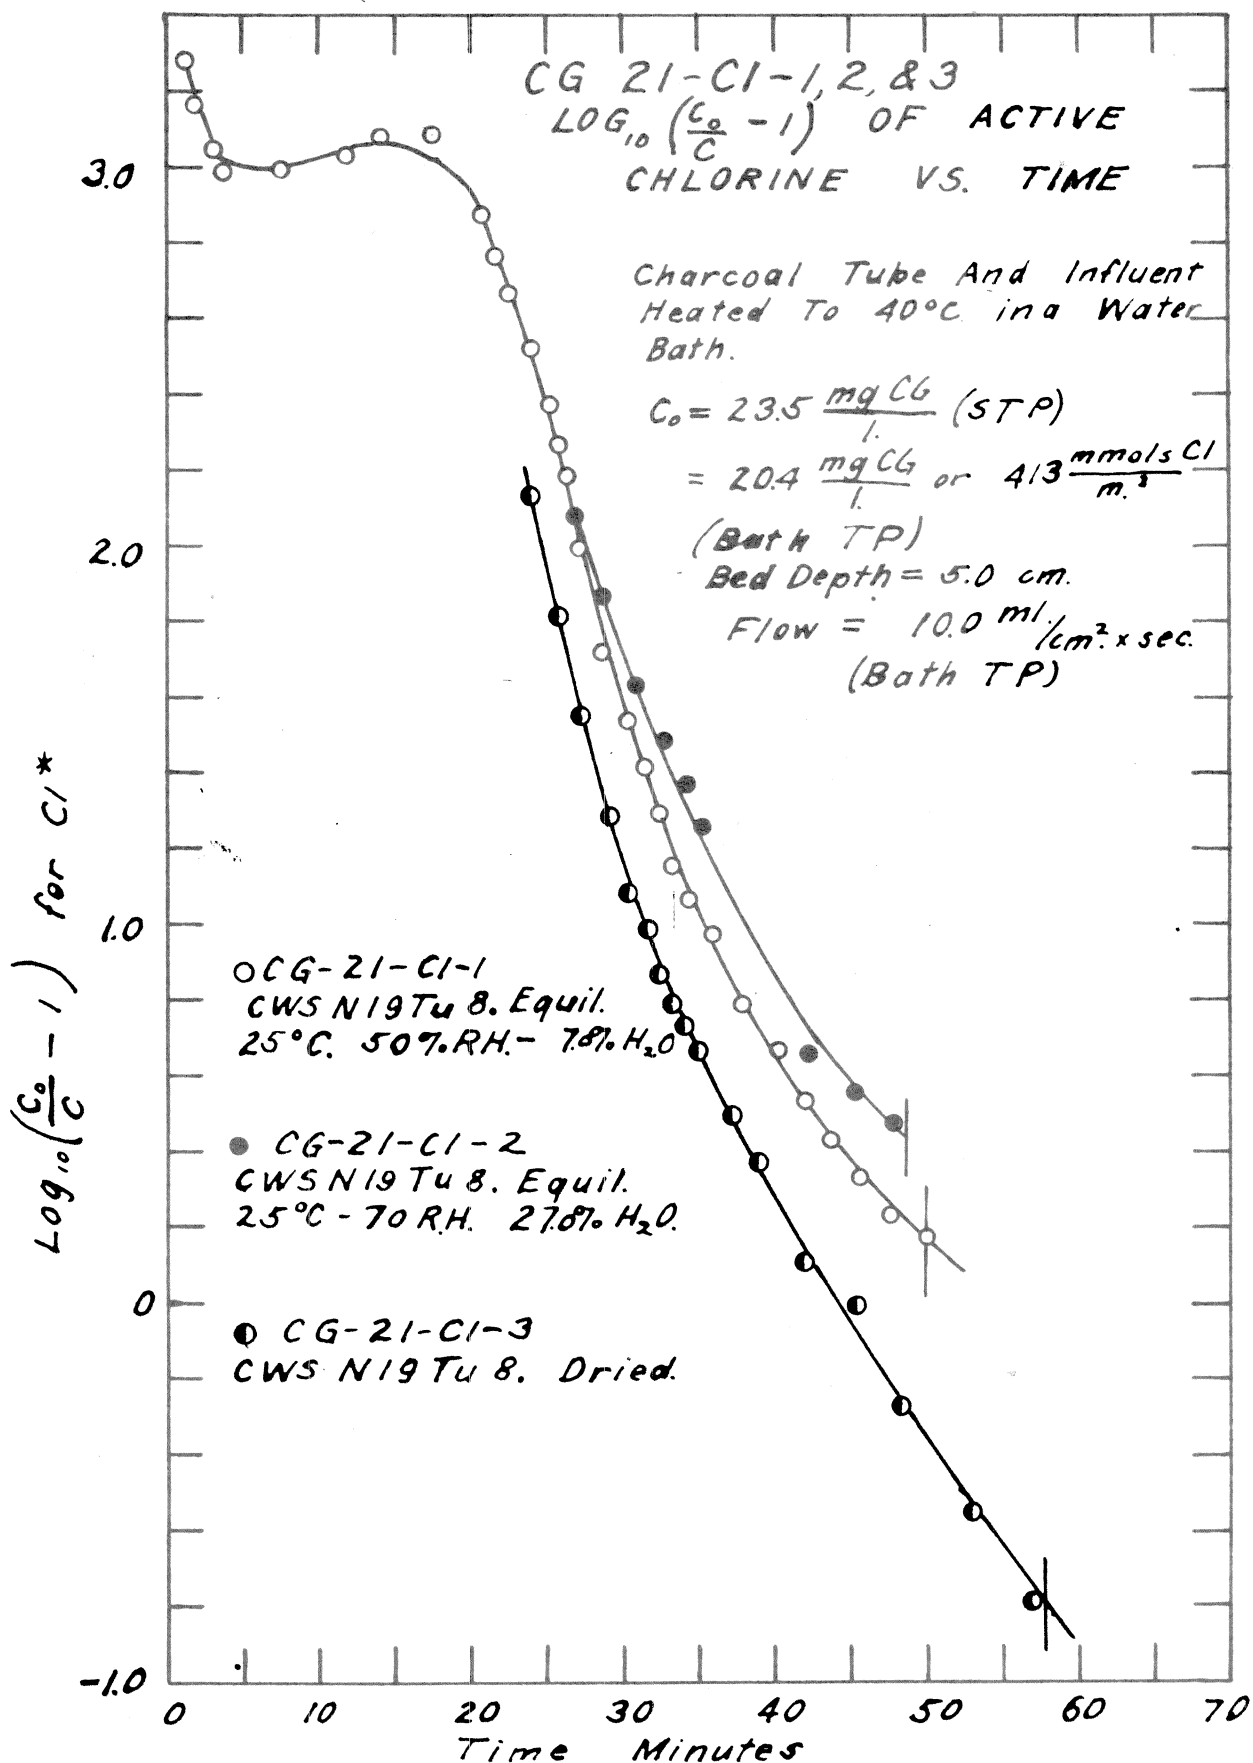 CG 21-Cl-1, 2, & 3
LOG₁₀ (C₀/C - 1) OF ACTIVE
CHLORINE VS. TIME
Charcoal Tube And Influent
Heated To 40°C in a Water
Bath.
C₀ = 23.5 mg CG/l. (STP)
= 20.4 mg CG/l. or 413 mmols Cl/m.³
(Bath TP)
Bed Depth = 5.0 cm.
Flow = 10.0 ml./cm². x sec.
(Bath TP)
3.0
2.0
1.0
0
-1.0
Log₁₀ (C₀/C - 1) for Cl*
○ CG-21-Cl-1
CWS N19 Tu 8. Equil.
25°C. 50% RH. - 7.8% H₂O
● CG-21-Cl-2
CWS N19 Tu 8. Equil.
25°C - 70 RH. 27.8% H₂O.
◐ CG-21-Cl-3
CWS N19 Tu 8. Dried.
0 10 20 30 40 50 60 70
Time Minutes